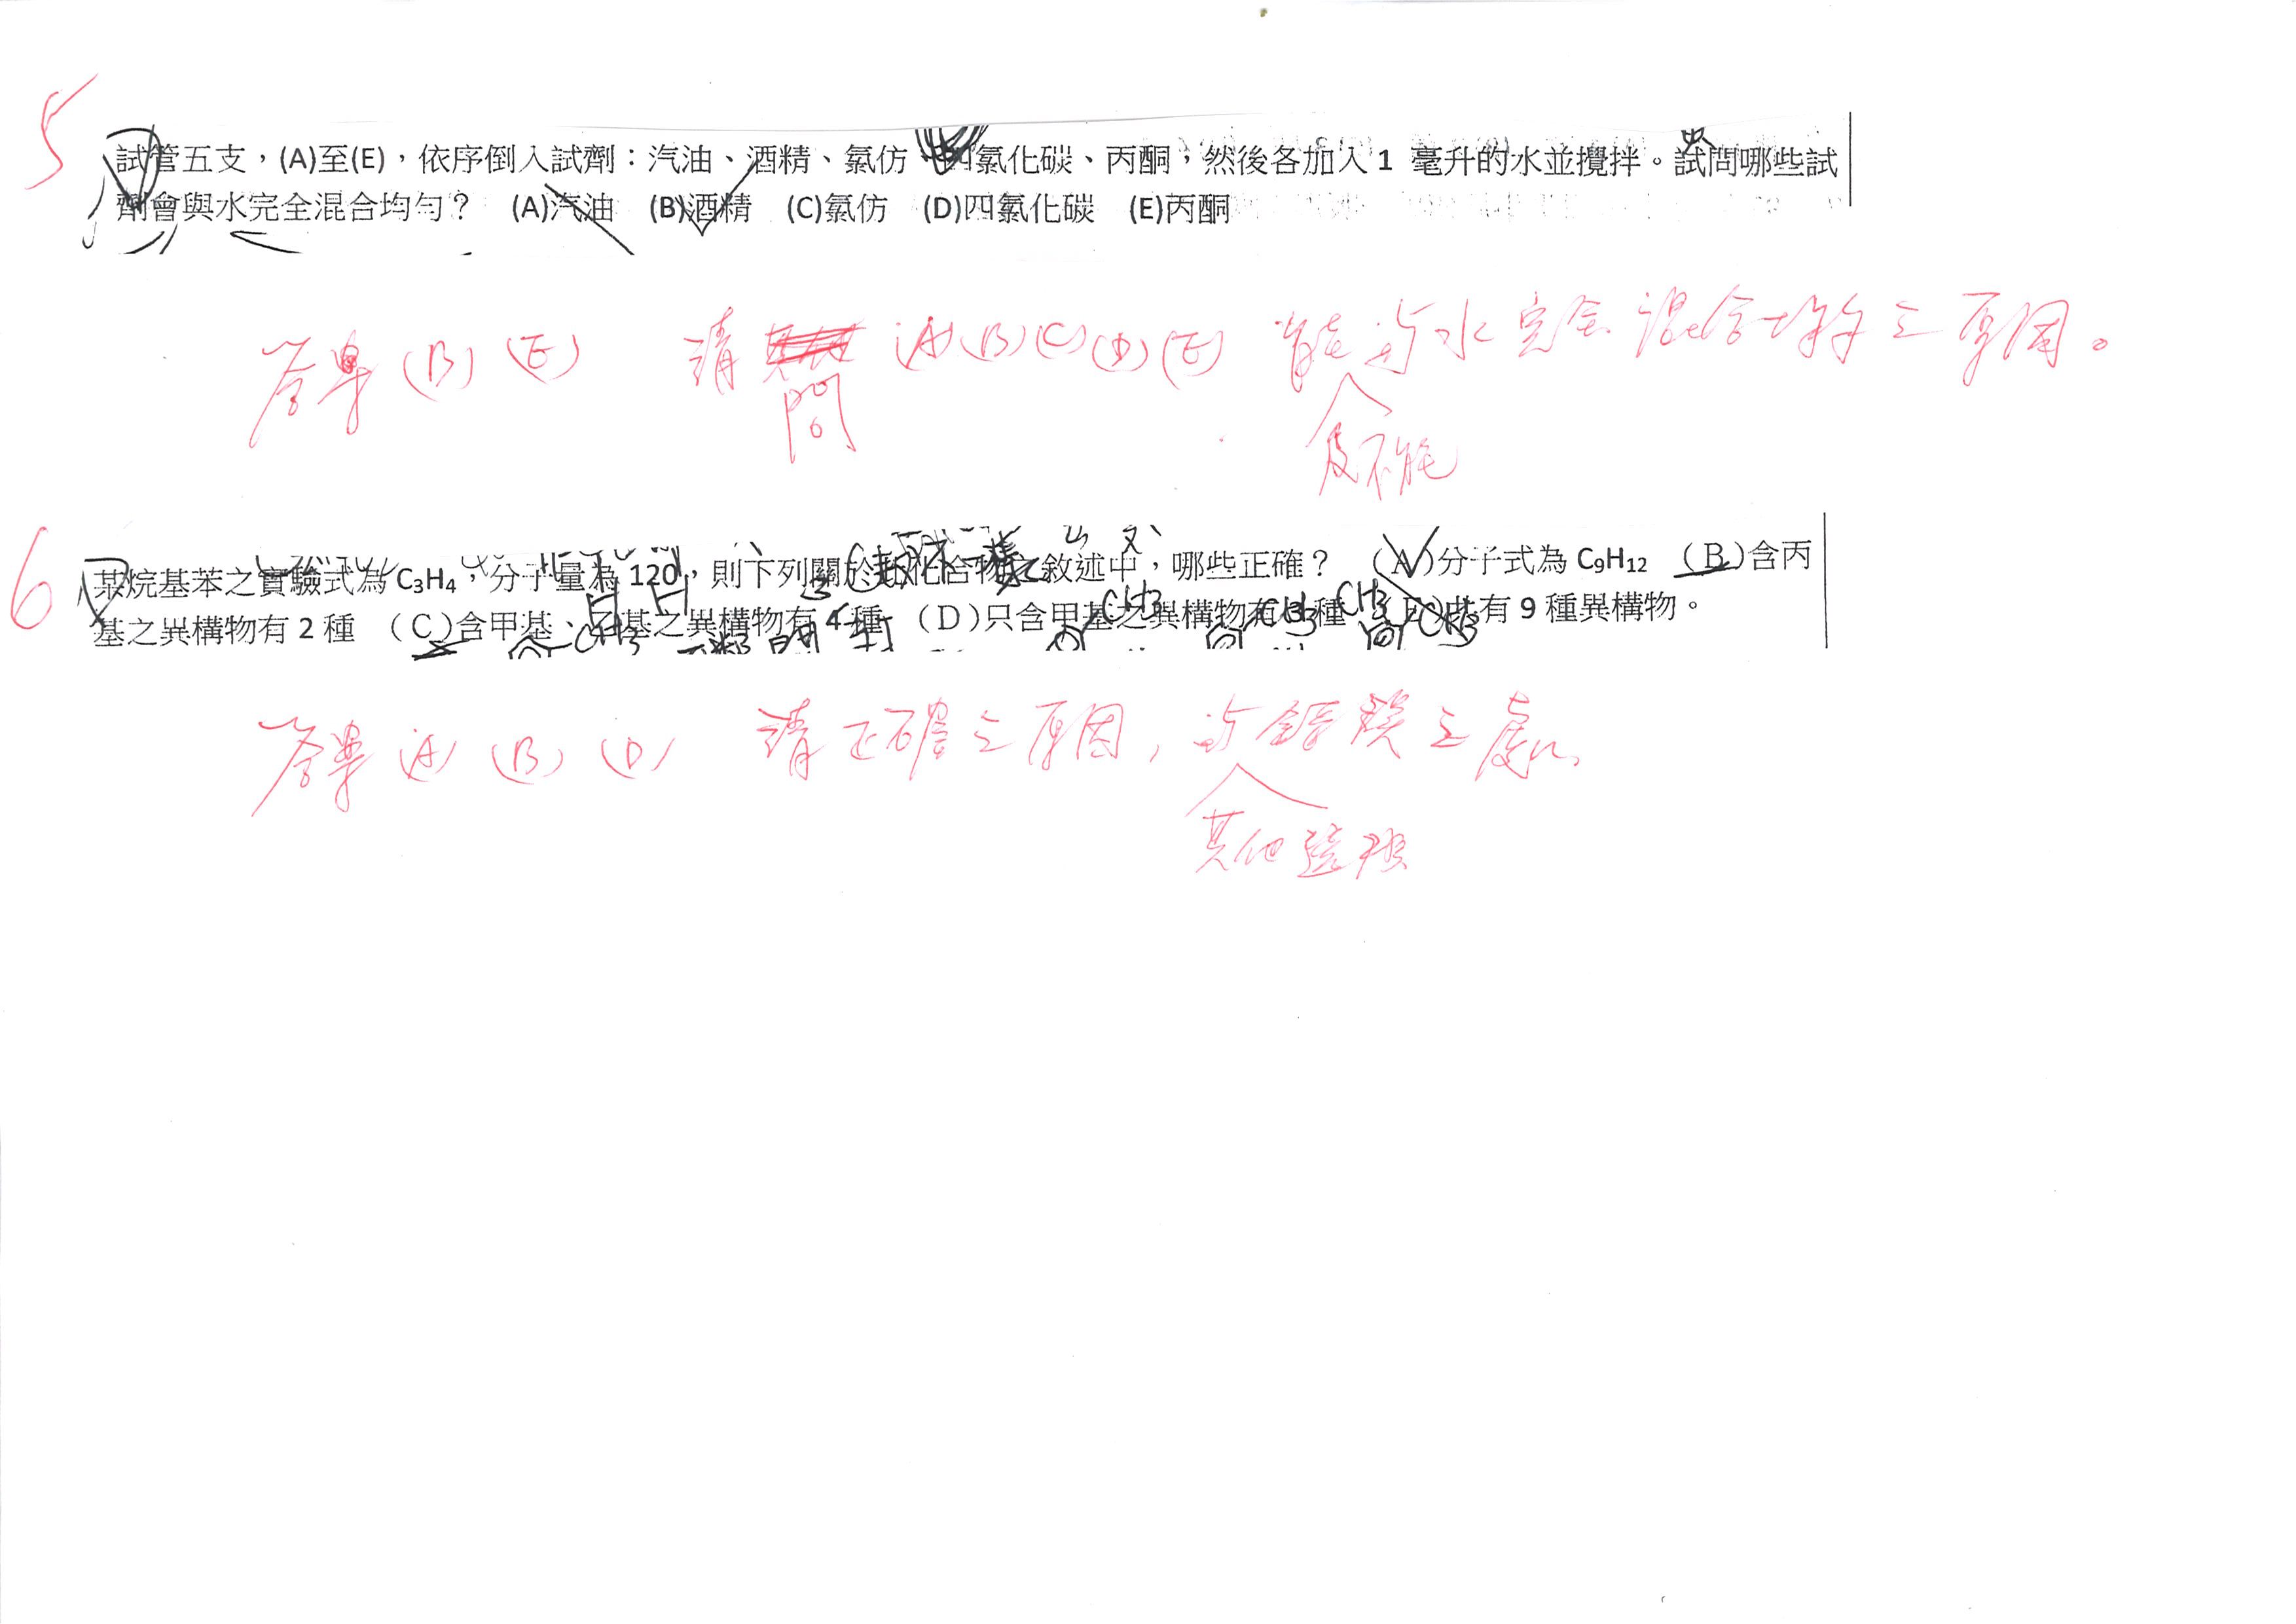 5
試管五支，(A)至(E)，依序倒入試劑：汽油、酒精、氯仿、四氯化碳、丙酮，然後各加入 1 毫升的水並攪拌。試問哪些試
劑會與水完全混合均勻？ (A)汽油 (B)酒精 (C)氯仿 (D)四氯化碳 (E)丙酮
答案 (B) (E) 請問 (A)(B)(C)(D)(E) 能与水完全混合均勻之原因。
及不能
6
某烷基苯之實驗式為 C₃H₄，分子量為 120，則下列關於此化合物之敘述中，哪些正確？ (A)分子式為 C₉H₁₂ (B)含丙
基之異構物有 2 種 (C)含甲基、乙基之異構物有 4 種 (D)只含甲基之異構物有 種 (E)共有 9 種異構物。
CH3 CH3 CH3 CH3 CH3
答案 (A) (B) (D) 請正確之原因，与錯誤之處
其他選項